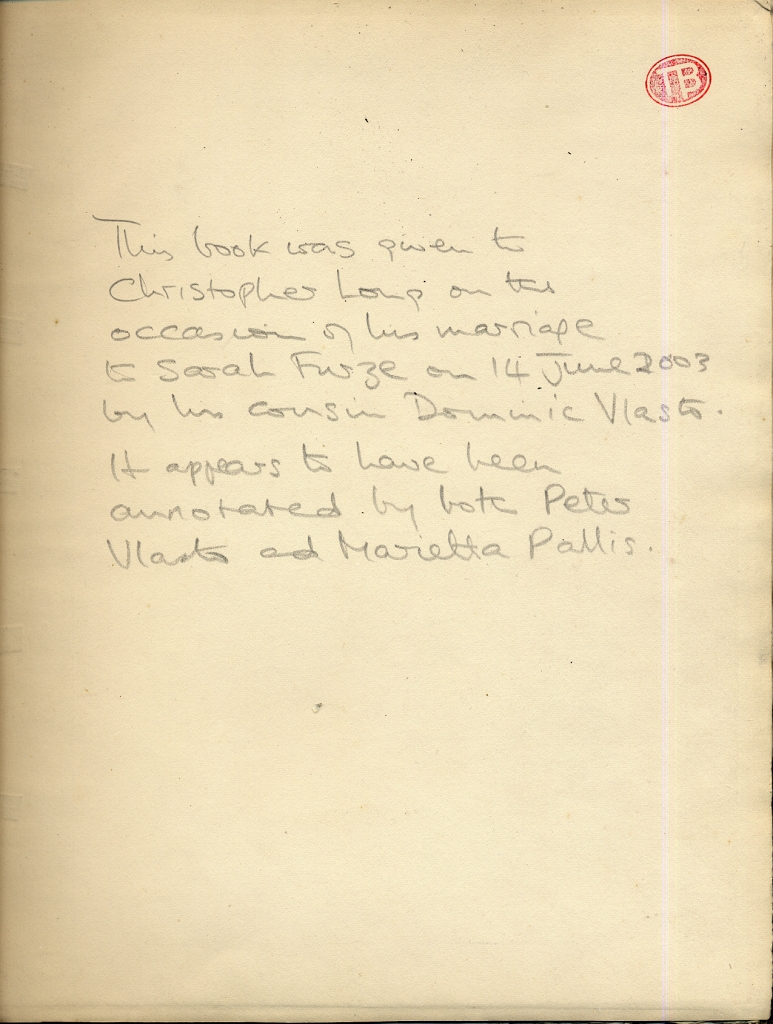 ΠB
This book was given to
Christopher Long on the
occasion of his marriage
to Sarah Furze on 14 June 2003
by his cousin Dominic Vlasto.
It appears to have been
annotated by both Peter
Vlasto and Marietta Pallis.